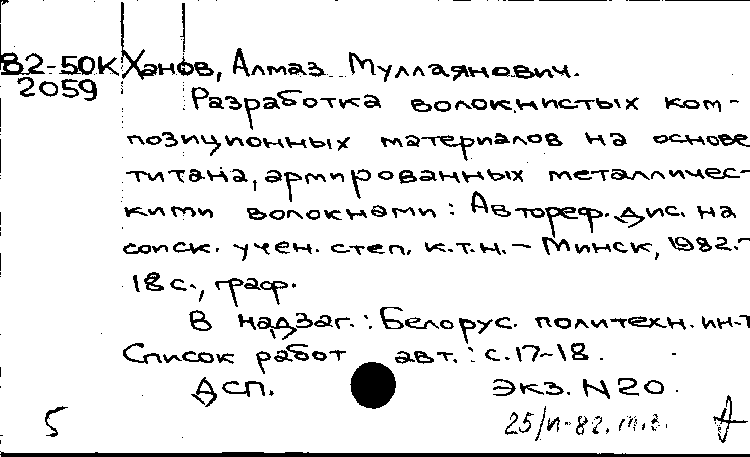 82-50К Ханов, Алмаз Муллаянович.
2059
Разработка волокнистых ком-
позиционных материалов на основе
титана, армированных металличес-
кими волокнами: Автореф. дис. на
соиск. учен. степ. к.т.н. – Минск, 1982. –
18 с., граф.
В надзаг.: Белорус. политехн. ин-т
Список работ авт.: с. 17–18.
ДСП. ЭКЗ. N 20.
5 25/